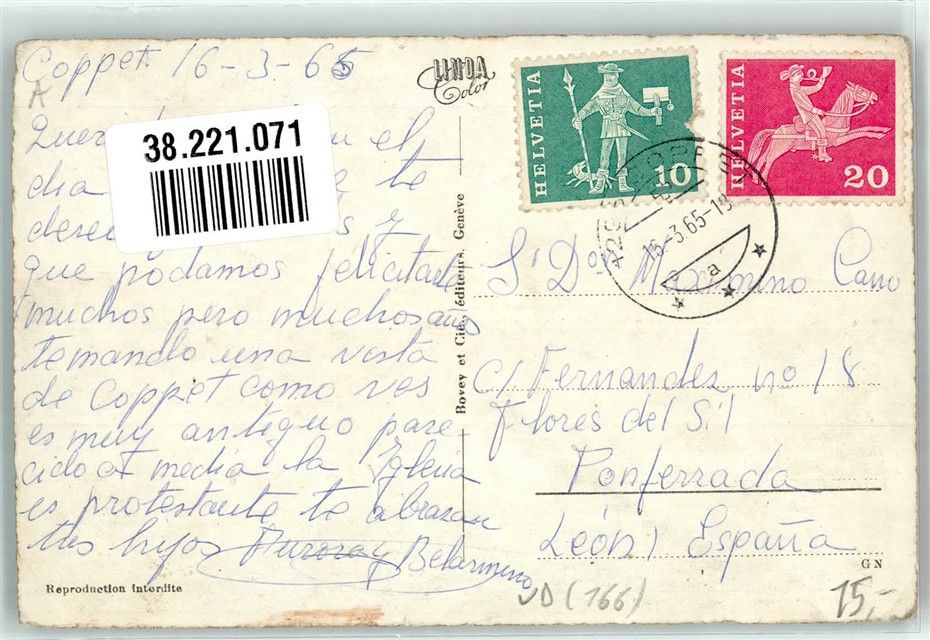 Coppet 16-3-65
A
38.221.071
en el
dia te
y
que podamos felicitarte
muchos pero muchos años
temando una vista
de Coppet como ves
es muy antiguo pare-
cido a media la Iglesia
es protestante te abrazan
tus hijos Aurora y Belarmino
Reproduction interdite
LINDA
Color
Bovey et Cie., éditeurs, Genève
HELVETIA
10
HELVETIA
20
-3.65-18
a
Sr Do Maximino Cano
C/ Fernandez no 18
Flores del Sil
Ponferrada
León, España
GN
JD (166)
15,-